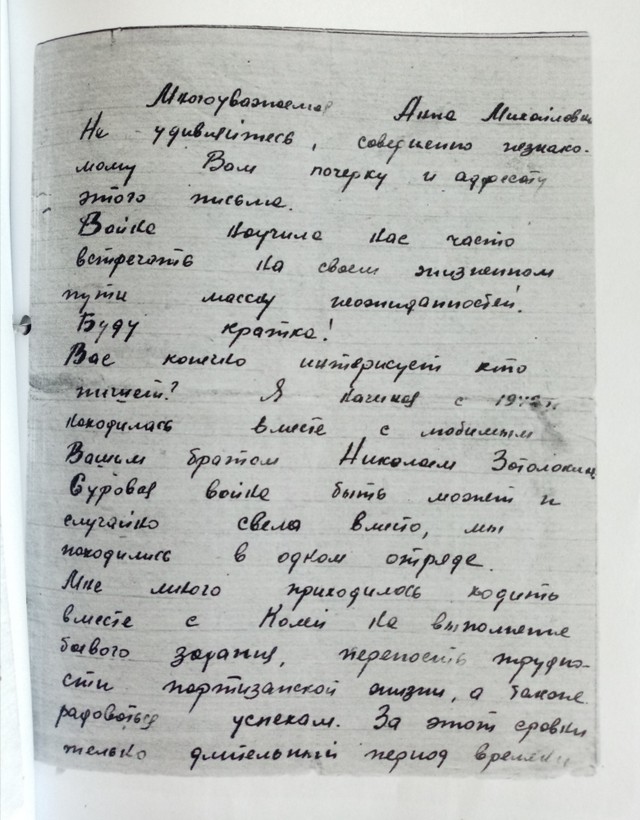 Многоуважаемая Анна Михайловна
Не удивляйтесь, совершенно незнако-
мому Вам почерку и адресату
этого письма.
Война научила нас часто
встречать на своем жизненном
пути массу неожиданностей!
Буду кратка!
Вас конечно интерисует кто
пишет? Я начиная с
находилась вместе с любимым
Вашим братом Николаем
Суровая война быть может и
случайно свела вместо, мы
находились в одном отряде.
Мне много приходилось ходить
вместе с Колей на выполнение
боевого задания, переность трудно-
сти партизанской жизни, а также
радоваться успехам. За этот сровни
тельно длительный период времени